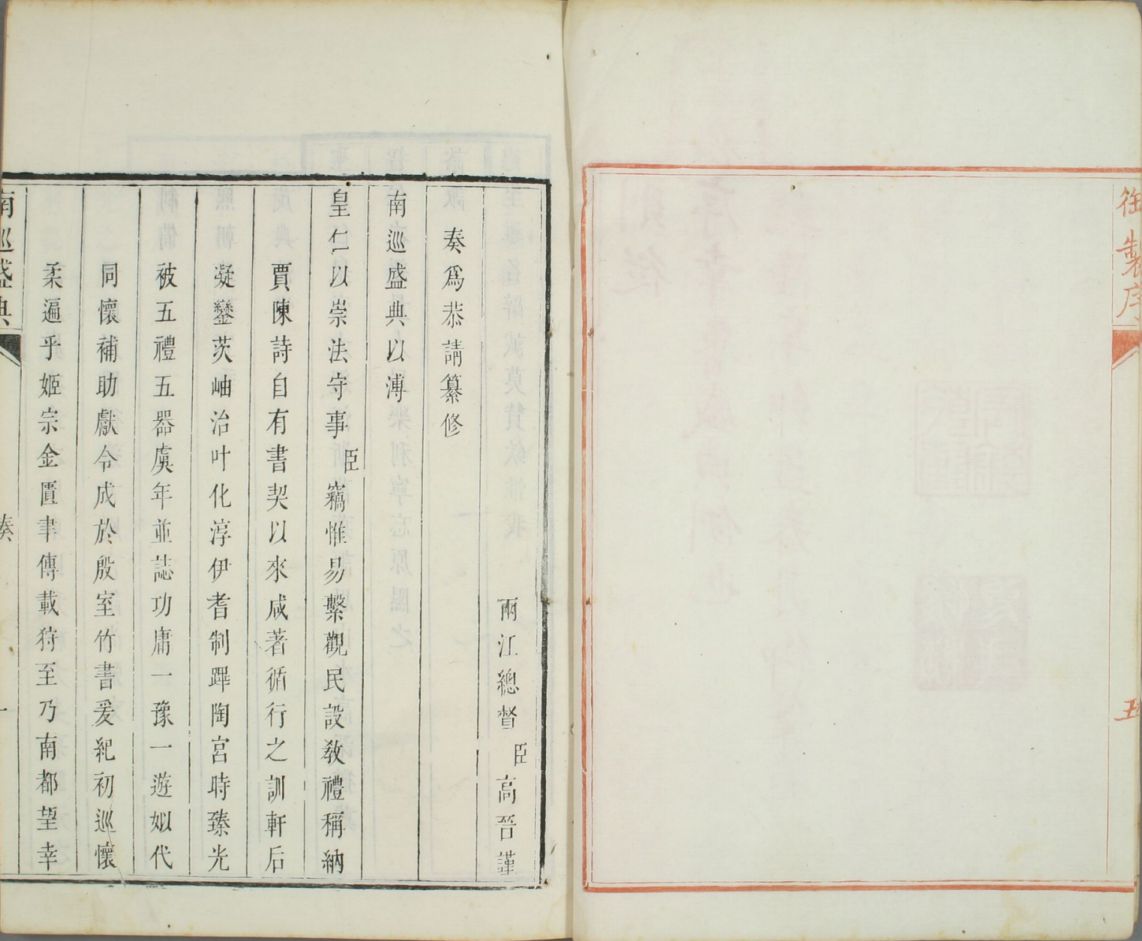 御製序
五
兩江總督臣高晉謹
奏爲恭請纂修
南巡盛典以溥
皇仁以崇法守事臣竊惟易繫觀民設敎禮稱納
賈陳詩自有書契以來咸著循行之訓軒后
凝鑾茨岫治叶化淳伊耆制蹕陶宮時臻光
被五禮五器虞年並誌功庸一豫一遊姒代
同懷補助獻令成於殷室竹書爰紀初巡懷
柔遍乎姬宗金匱聿傳載狩至乃南都望幸
南巡盛典
奏
一